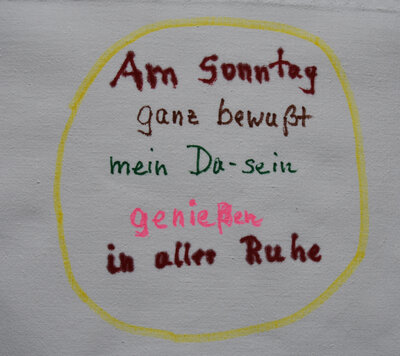 Am Sonntag
ganz bewußt
mein Da-sein
genießen
in aller Ruhe